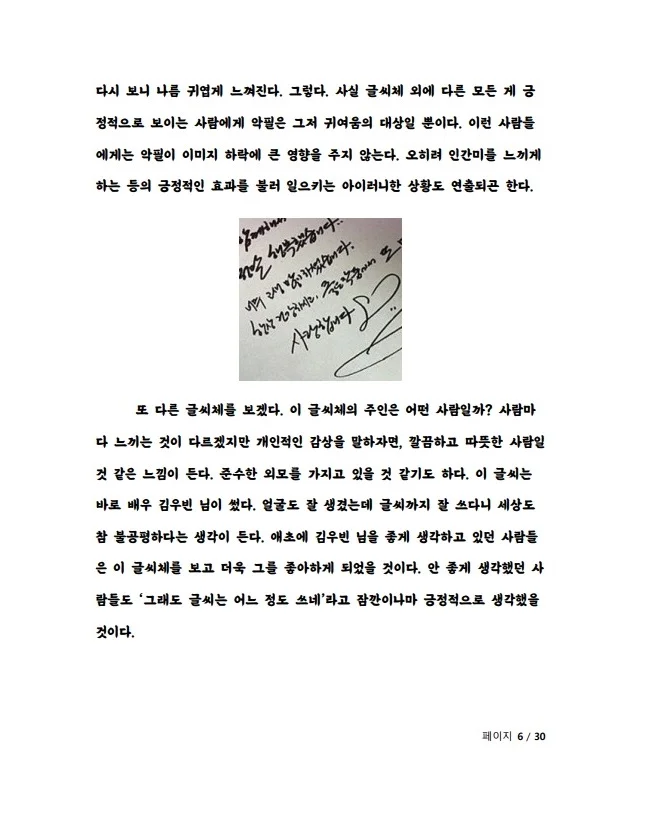 다시 보니 나름 귀엽게 느껴진다. 그렇다. 사실 글씨체 외에 다른 모든 게 긍
정적으로 보이는 사람에게 악필은 그저 귀여움의 대상일 뿐이다. 이런 사람들
에게는 악필이 이미지 하락에 큰 영향을 주지 않는다. 오히려 인간미를 느끼게
하는 등의 긍정적인 효과를 불러 일으키는 아이러니한 상황도 연출되곤 한다.
행복했습니다..
사랑합니다
또 다른 글씨체를 보겠다. 이 글씨체의 주인은 어떤 사람일까? 사람마
다 느끼는 것이 다르겠지만 개인적인 감상을 말하자면, 깔끔하고 따뜻한 사람일
것 같은 느낌이 든다. 준수한 외모를 가지고 있을 것 같기도 하다. 이 글씨는
바로 배우 김우빈 님이 썼다. 얼굴도 잘 생겼는데 글씨까지 잘 쓰다니 세상도
참 불공평하다는 생각이 든다. 애초에 김우빈 님을 좋게 생각하고 있던 사람들
은 이 글씨체를 보고 더욱 그를 좋아하게 되었을 것이다. 안 좋게 생각했던 사
람들도 ‘그래도 글씨는 어느 정도 쓰네’라고 잠깐이나마 긍정적으로 생각했을
것이다.
페이지 6 / 30